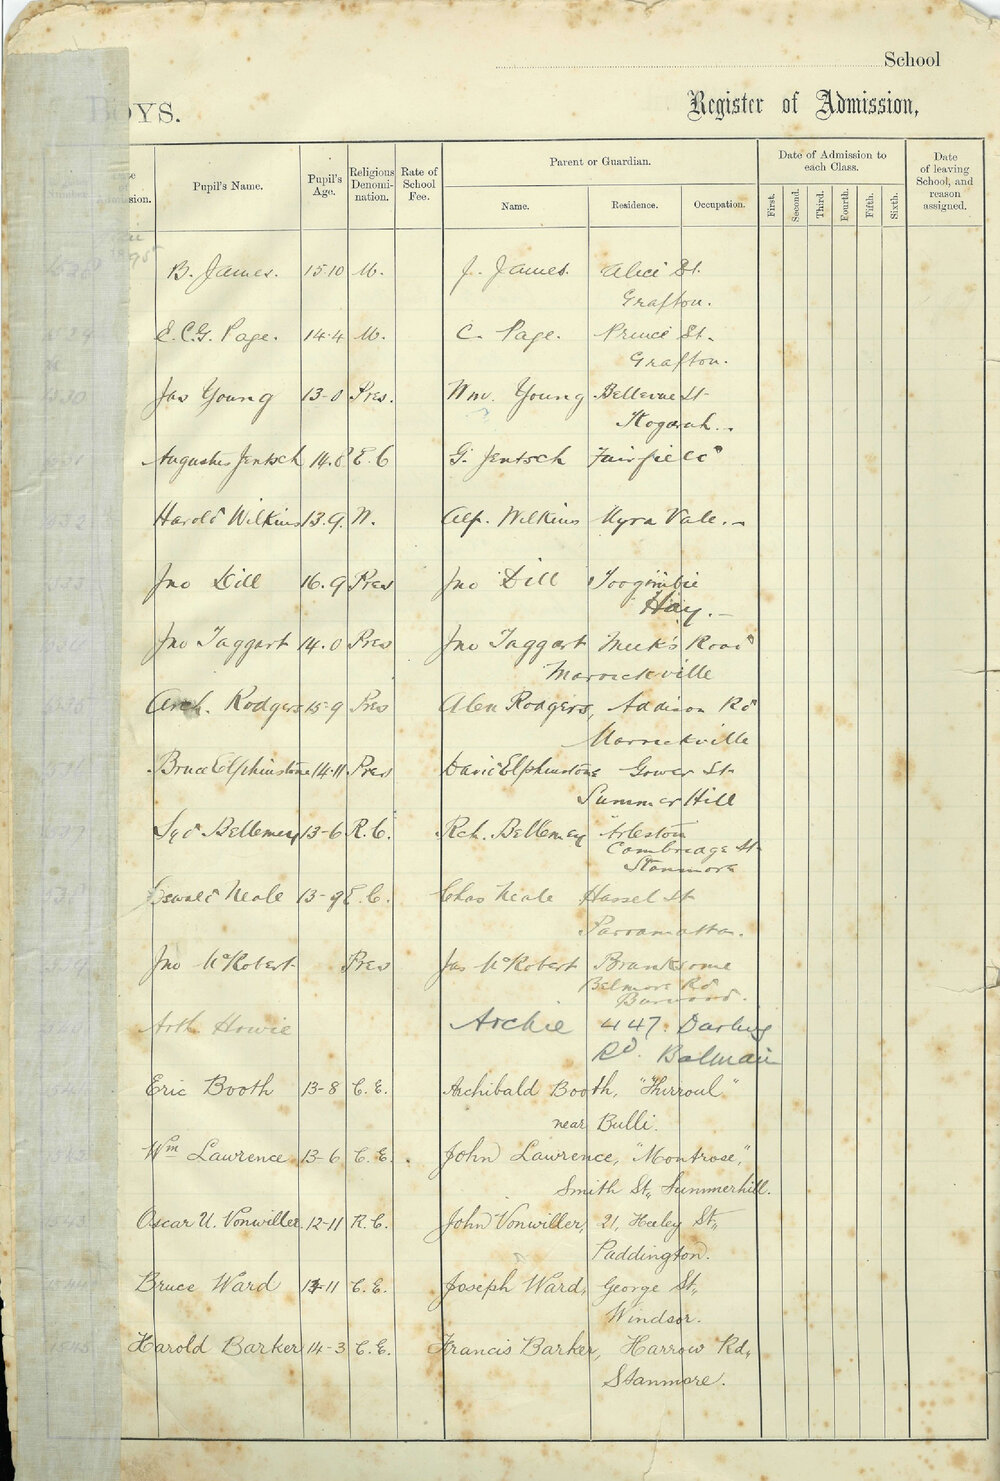 School
BOYS.
Register of Admission,
Pupil's Name.
Pupil's Age.
Religious Denomi-nation.
Rate of School Fee.
Parent or Guardian.
Name.
Residence.
Occupation.
Date of Admission to each Class.
First.
Second.
Third.
Fourth.
Fifth.
Sixth.
Date of leaving School, and reason assigned.
B. James. 15.10 W. J. James. Alice St.
Grafton.
E.C.G. Page. 14.4 W. C. Page. Prince St.
Grafton.
Jas Young 13-0 Pres. Wm. Young Bellevue St
Kogarah.
Augustus Jentsch 14.8 E.C G. Jentsch Fairfield
Harold Wilkins 13.9. W. Alf. Wilkins Myra Vale.
Jno Dill 16.9 Pres Jno Dill
Hay.
Jno Taggart 14.0 Pres Jno Taggart Meek's Road
Marrickville
Arch. Rodgers 15-9 Pres Alex Rodgers, Addison Rd
Marrickville
Bruce Elphinstone 14-11 Pres David Elphinstone Gower St
Summer Hill
Syd Bellemey 13-6 R.C. Rch. Bellemey Arleston
Cambridge St
Stanmore
Oswald Neale 13-9 E.C. Chas Neale Hassel St
Parramatta.
Jno McRobert Pres Jas McRobert Branksome
Belmore Rd
Burwood.
Arth. Howie Archie 447. Darling
Rd. Balmain
Eric Booth 13-8 C.E. Archibald Booth, "Thirroul"
near Bulli.
Wm Lawrence 13-6 C.E. John Lawrence, "Montrose",
Smith St., Summerhill.
Oscar U. Vonwiller 12-11 R.C. John Vonwiller, 21, Heeley St.,
Paddington.
Bruce Ward 11 C.E. Joseph Ward, George St.,
Windsor.
Harold Barker 14-3 C.E. Francis Barker, Harrow Rd,
Stanmore.